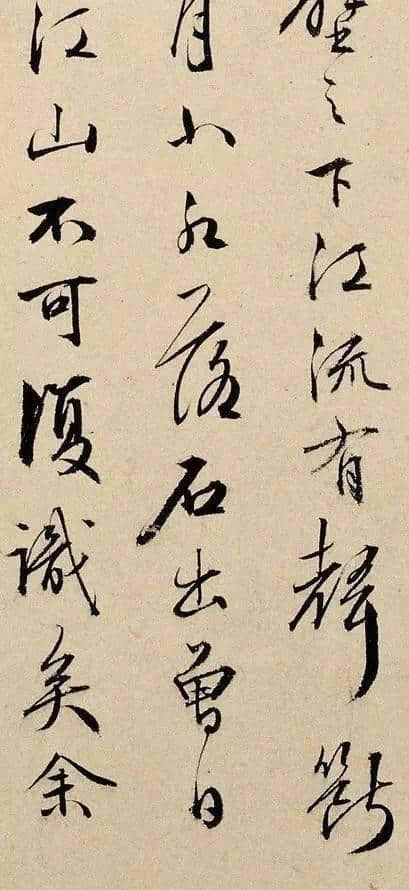 壁之下江流有聲斷
月小水落石出曾日
江山不可復識矣余